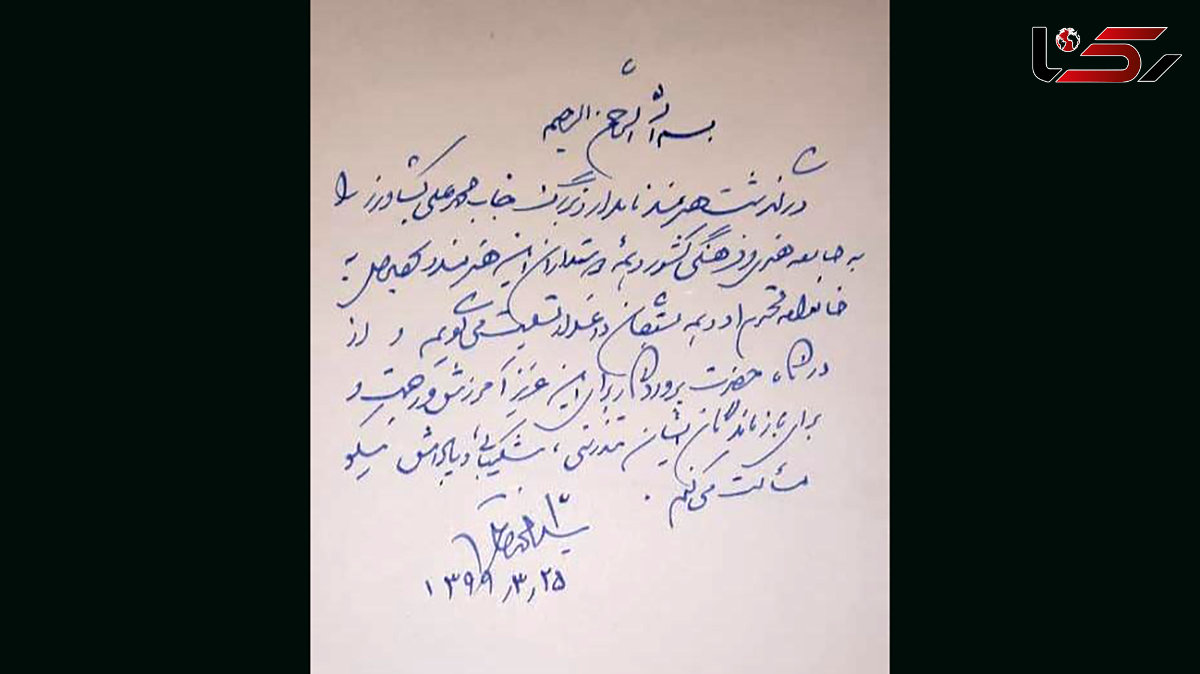 رکنا
بسم الله الرحمن الرحیم
درگذشت هنرمند نامدار و بزرگ جناب محمدعلی کشاورز را
به جامعه هنری و فرهنگی کشور و همهٔ دوستداران این هنرمند و به
خانواده محترم او و همه بستگان داغدار تسلیت می‌گویم و از
درگاه حضرت پروردگار برای این عزیز آمرزش و رحمت و
برای بازماندگان ایشان تندرستی، شکیبایی و پاداش نیکو
مسألت می‌کنم.
سید محمد خاتمی
۱۳۹۹٫۳٫۲۵